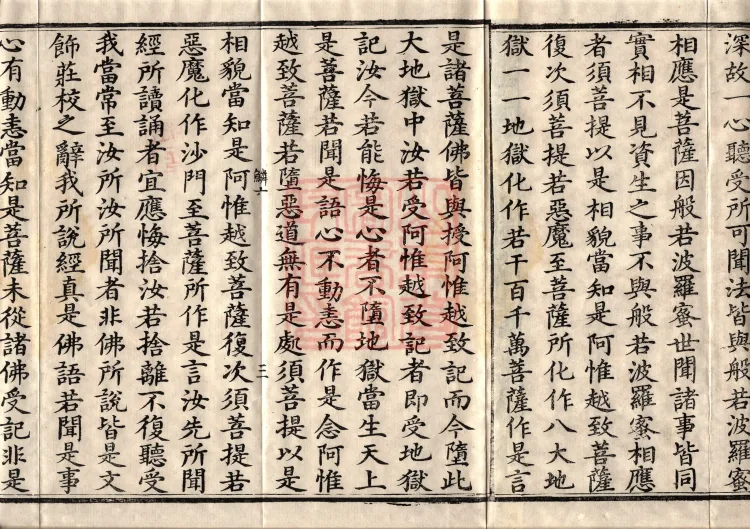 深故一心聽受所可聞法皆與般若波羅蜜
相應是菩薩因般若波羅蜜世間諸事皆同
實相不見資生之事不與般若波羅蜜相應
者須菩提以是相貌當知是阿惟越致菩薩
復次須菩提若惡魔至菩薩所化作八大地
獄一一地獄化作若干百千萬菩薩作是言
是諸菩薩佛皆與授阿惟越致記而今墮此
大地獄中汝若受阿惟越致記者即受地獄
記汝今若能悔是心者不墮地獄當生天上
是菩薩若聞是語心不動恚而作是念阿惟
越致菩薩若墮惡道無有是處須菩提以是
鱗六 三
相貌當知是阿惟越致菩薩復次須菩提若
惡魔化作沙門至菩薩所作是言汝先所聞
經所讀誦者宜應悔捨汝若捨離不復聽受
我當常至汝所汝所聞者非佛所說皆是文
飾莊校之辭我所說經真是佛語若聞是事
心有動恚當知是菩薩未從諸佛受記非是